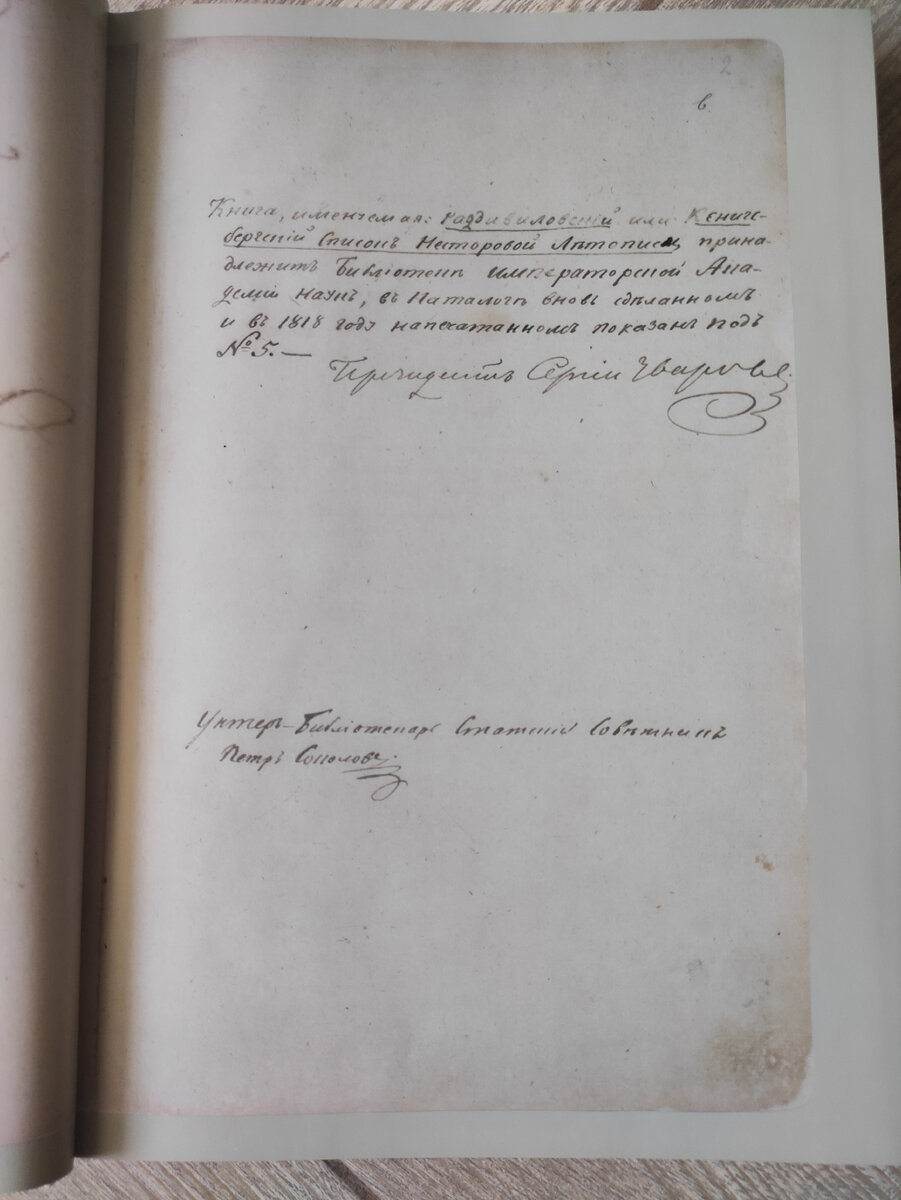 2
6
Книга, именуемая: Раздивиловскій или Кениге-
бергскій Списокъ Несторовой Лѣтописи, прина-
длежитъ Библіотекѣ Императорской Ака-
деміи Наукъ, въ Каталогѣ вновь сдѣланномъ
и въ 1818 году напечатанномъ показанъ подъ
№ 5.—
Президентъ Сергій Уваровъ.
Унтеръ-Библіотекарь Статскій Совѣтникъ
Петръ Соколовъ.